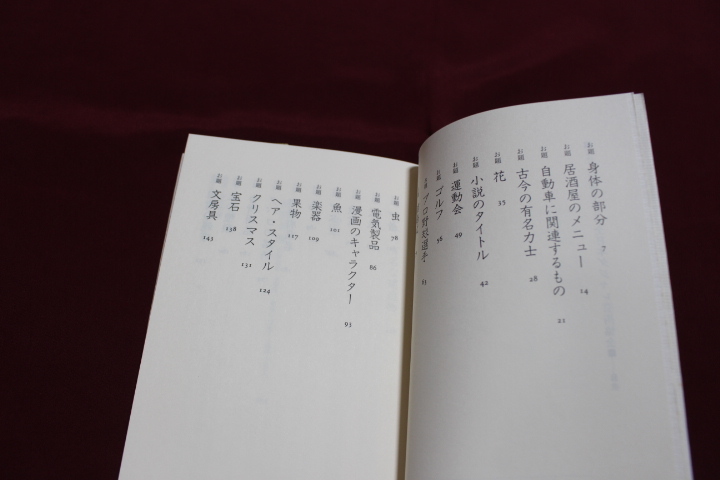 お題 身体の部分 7
お題 居酒屋のメニュー 14
お題 自動車に関連するもの 21
お題 古今の有名力士 28
お題 花 35
お題 小説のタイトル 42
お題 運動会 49
お題 ゴルフ 56
お題 プロ野球選手 63
お題 虫 78
お題 電気製品 86
お題 漫画のキャラクター 93
お題 魚 101
お題 楽器 109
お題 果物 117
お題 ヘア・スタイル 124
お題 クリスマス 131
お題 宝石 138
お題 文房具 143